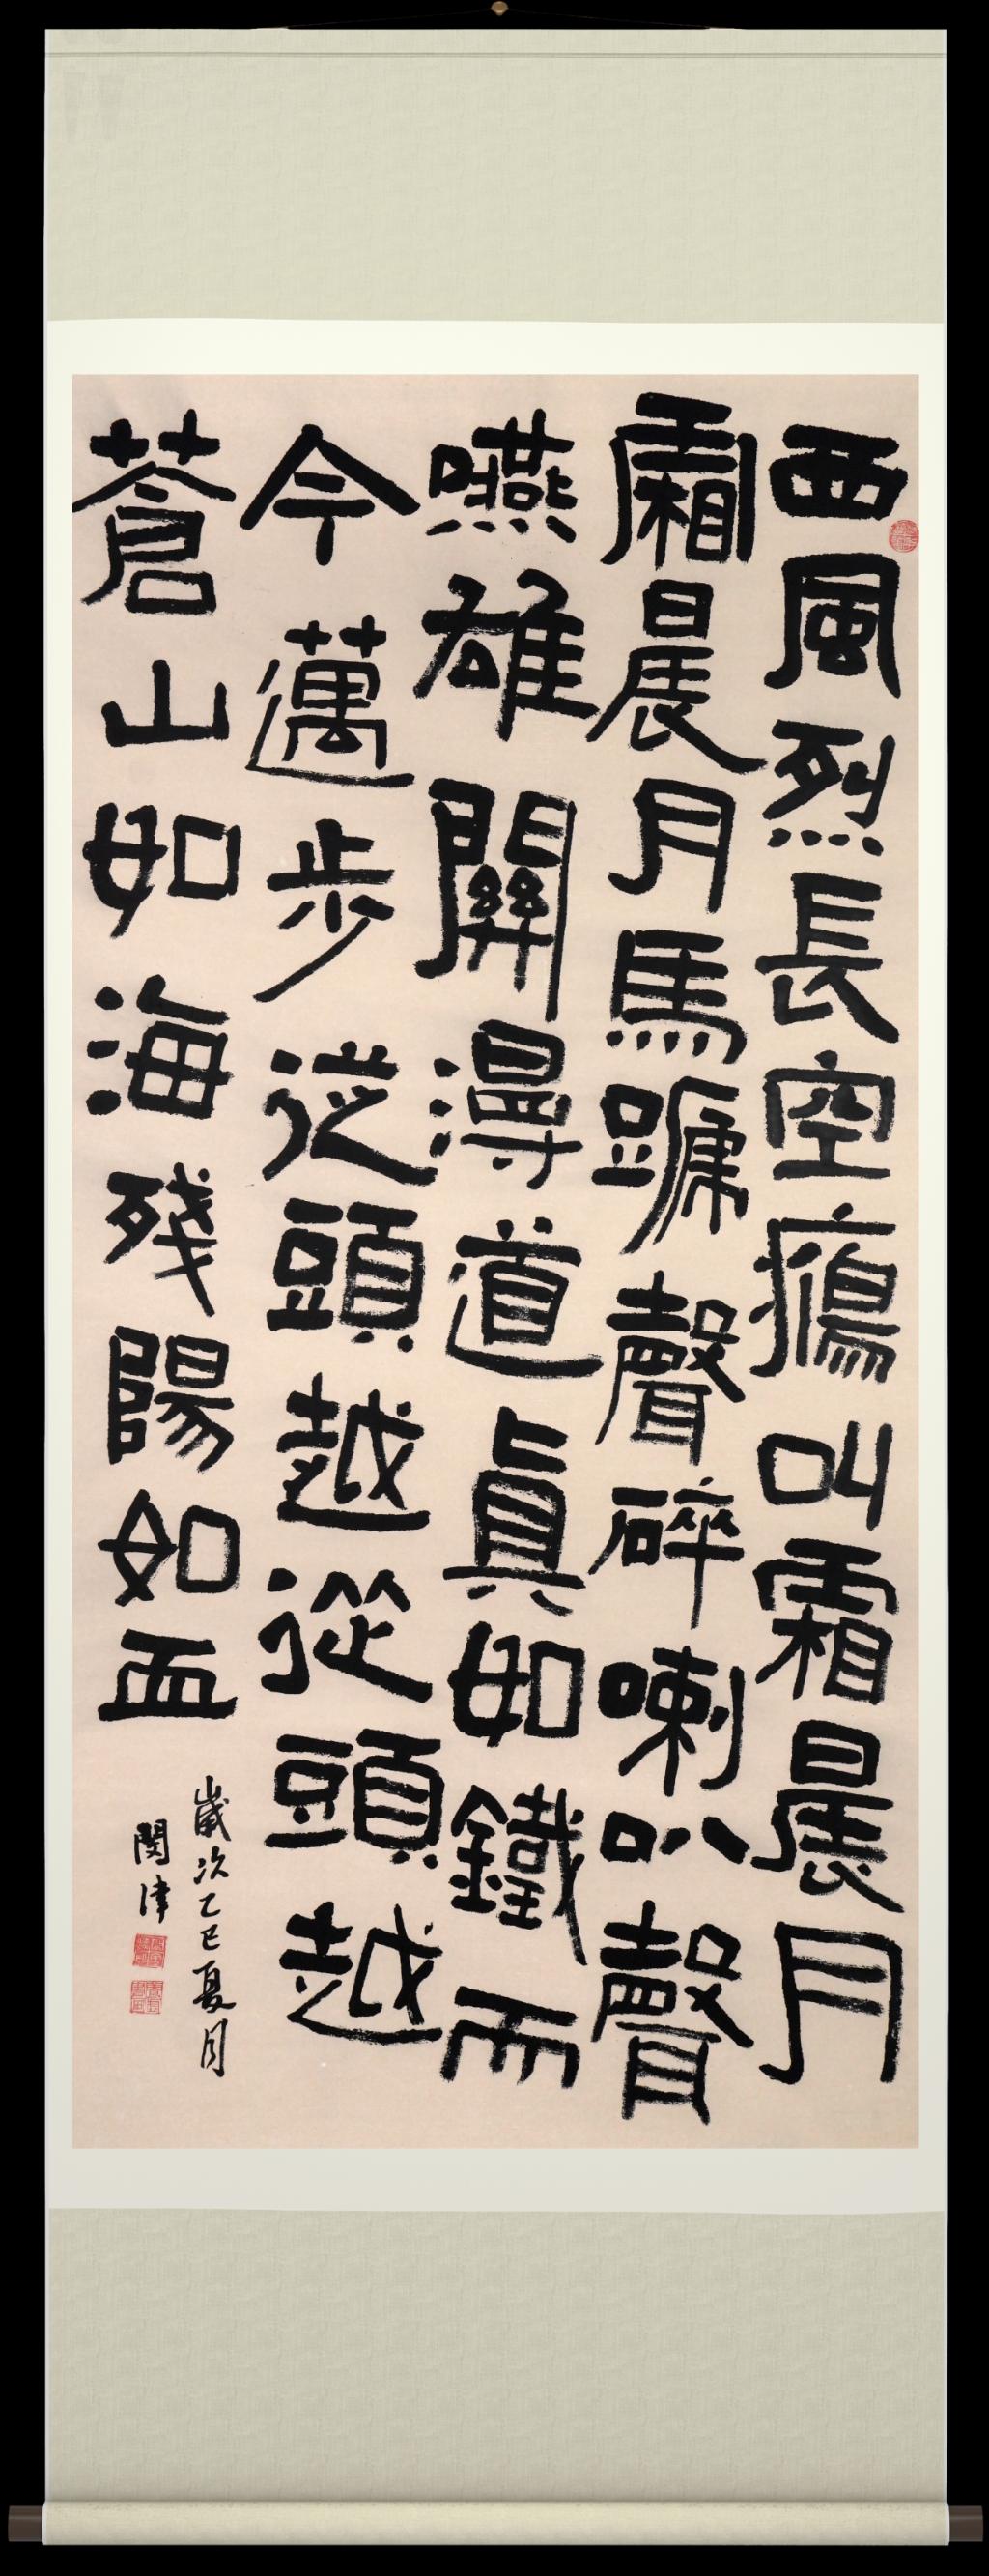 西風烈長空鴈叫霜晨月
霜晨月馬蹏聲碎喇叭聲
嚥雄關漫道眞如鐵而
今邁步從頭越從頭越
蒼山如海殘陽如血
歲次乙巳夏月
閔津